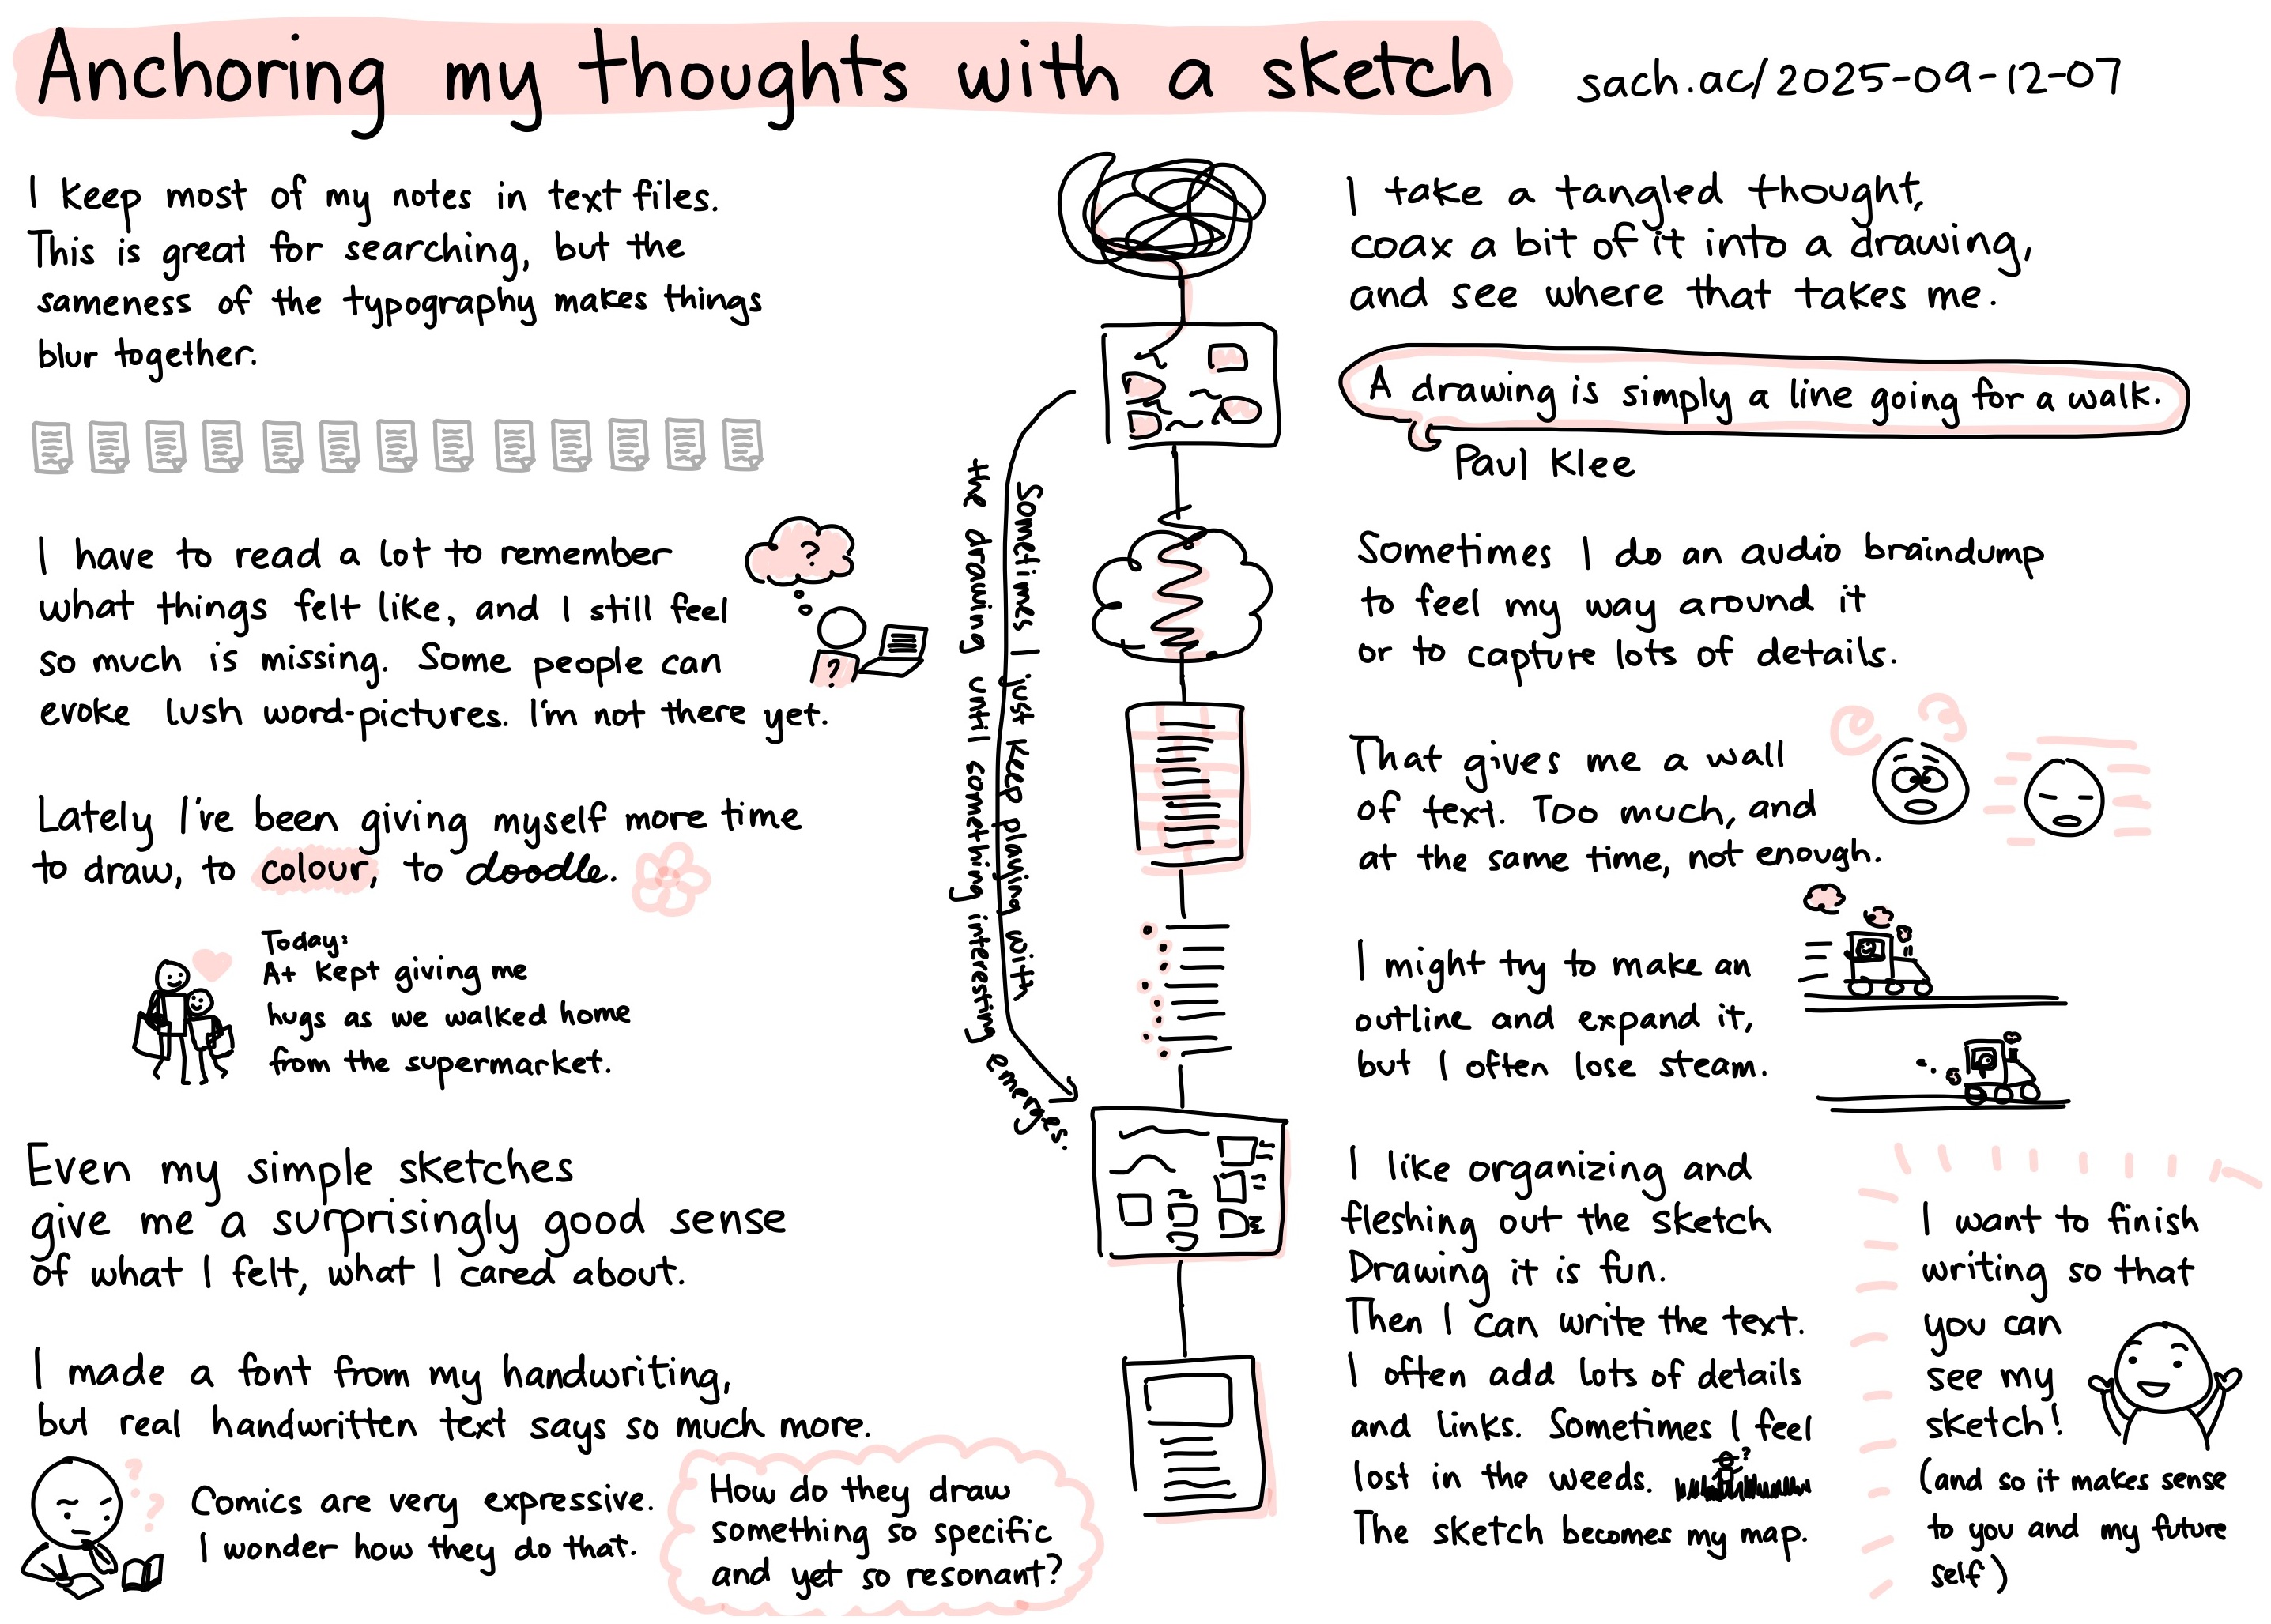 Anchoring my thoughts with a sketch
sach.ac/2025-09-12-07
I keep most of my notes in text files.
This is great for searching, but the
sameness of the typography makes things
blur together.
I have to read a lot to remember
what things felt like, and I still feel
so much is missing. Some people can
evoke lush word-pictures. I'm not there yet.
?
?
Lately I've been giving myself more time
to draw, to colour, to doodle.
Today:
A+ kept giving me
hugs as we walked home
from the supermarket.
Even my simple sketches
give me a surprisingly good sense
of what I felt, what I cared about.
I made a font from my handwriting,
but real handwritten text says so much more.
? ?
Comics are very expressive.
I wonder how they do that.
How do they draw
something so specific
and yet so resonant?
Sometimes I just keep playing with
the drawing until something interesting emerges.
I take a tangled thought,
coax a bit of it into a drawing,
and see where that takes me.
A drawing is simply a line going for a walk.
Paul Klee
Sometimes I do an audio braindump
to feel my way around it
or to capture lots of details.
That gives me a wall
of text. Too much, and
at the same time, not enough.
I might try to make an
outline and expand it,
but I often lose steam.
I like organizing and
fleshing out the sketch
Drawing it is fun.
Then I can write the text.
I often add lots of details
and links. Sometimes I feel
lost in the weeds.
?
The sketch becomes my map.
I want to finish
writing so that
you can
see my
sketch!
(and so it makes sense
to you and my future
self)